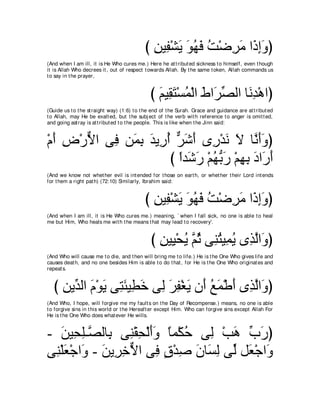 ﴿وَإِذَا مَرِضْتُ فَهُوَ يَشْفِينِ ﴾
(And when I am ill, it is He Who cures me.) Here he attributed sickness to himself, even though it is Allah Who decrees it, out of respect towards Allah. By the same token, Allah commands us to say in the prayer,
﴿اهْدِنَا الصِّرَاطَ الْمُسْتَقِيمَ ﴾
(Guide us to the straight way) (1:6) to the end of the Surah. Grace and guidance are attributed to Allah, may He be exalted, but the subject of the verb with reference to anger is omitted, and going astray is attributed to the people. This is like when the Jinn said:
﴿وَأَنَّا لاَ نَدْرِى أَشَرٌّ أُرِيدَ بِمَن فِى الاٌّرْضِ أَمْ أَرَادَ بِهِمْ رَبُّهُمْ رَشَداً ﴾
(And we know not whether evil is intended for those on earth, or whether their Lord intends for them a right path) (72:10) Similarly, Ibrahim said:
﴿وَإِذَا مَرِضْتُ فَهُوَ يَشْفِينِ ﴾
(And when I am ill, it is He Who cures me.) meaning, `when I fall sick, no one is able to heal me but Him, Who heals me with the means that may lead to recovery'.
﴿وَالَّذِى يُمِيتُنِى ثُمَّ يُحْيِينِ ﴾
(And Who will cause me to die, and then will bring me to life.) He is the One Who gives life and causes death, and no one besides Him is able to do that, for He is the One Who originates and repeats.
﴿وَالَّذِى أَطْمَعُ أَن يَغْفِرَ لِى خَطِيئَتِى يَوْمَ الدِّينِ ﴾
(And Who, I hope, will forgive me my faults on the Day of Recompense.) means, no one is able to forgive sins in this world or the Hereafter except Him. Who can forgive sins except Allah For He is the One Who does whatever He wills.
﴿رَبِّ هَبْ لِى حُكْماً وَأَلْحِقْنِى بِالصَّـلِحِينَ - وَاجْعَل لِّى لِسَانَ صِدْقٍ فِى الاٌّخِرِينَ - وَاجْعَلْنِى